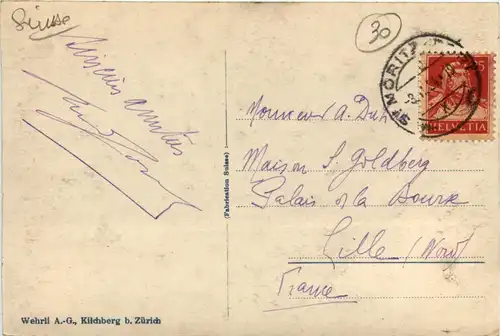 Suisse
30
Sincères amitiés
ST. MORITZ
HELVETIA
Monsieur A. Duh
Maison S. Goldberg
Palais de la Bourse
Lille (Nord)
France
(Fabrication Suisse)
Wehrli A.-G., Kilchberg b. Zürich